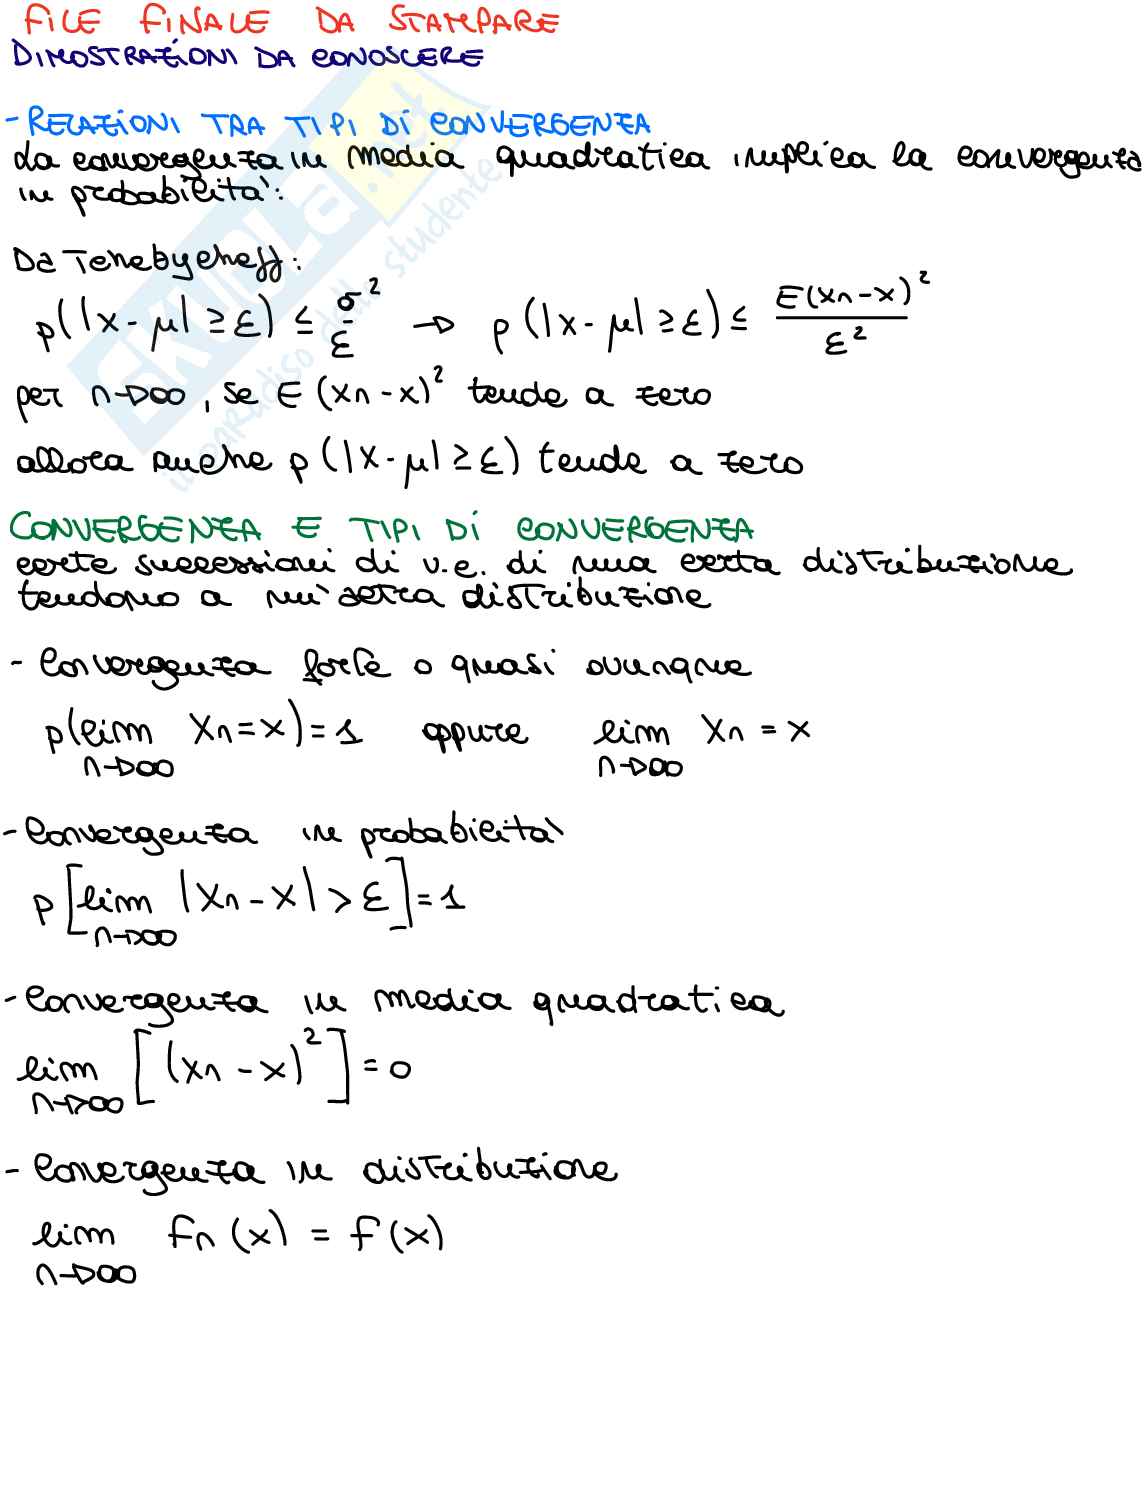 FILE FINALE DA STAMPARE
DIMOSTRAZIONI DA CONOSCERE
- RELAZIONI TRA TIPI DI CONVERGENZA
La convergenza in media quadratica implica la convergenza
in probabilità:
Da Tchebycheff:
p(|x-μ| ≥ε) ≤ σ²/ε → p(|x-μ| ≥ε) ≤ E(xn-x)²/ε²
per n→∞, se E(xn-x)² tende a zero
allora anche p(|x-μ| ≥ε) tende a zero
CONVERGENZA E TIPI DI CONVERGENZA
certe successioni di v.c. di una certa distribuzione
tendono a un'altra distribuzione
- Convergenza forte o quasi ovunque
p(lim n→∞ Xn=x)=1 oppure lim n→∞ Xn=x
- Convergenza in probabilità
p[lim n→∞ |Xn-x| > ε]=1
- Convergenza in media quadratica
lim n→∞ [(xn-x)²]=0
- Convergenza in distribuzione
lim n→∞ fn(x) = f(x)
SKUOLA.net
il paradiso dello studente